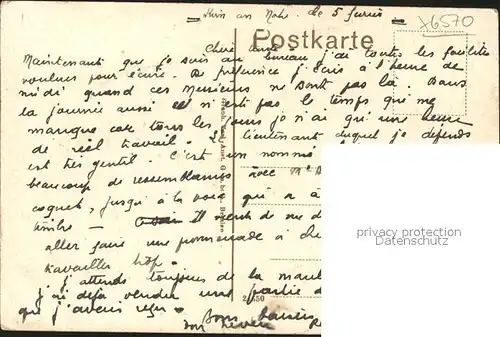 = Kirn an Nahe. le 5 février =
x6570
Postkarte
Chère amie
Maintenant que je suis au bureau j'ai toutes les facilités
voulues pour écrire. De préférence j'écris à l'heure de
midi quand ces Messieurs ne sont pas là. Dans
la journée aussi ce n'est pas le temps qui me
manque car tous les jours je n'ai qu'une heure
de réel travail. Le lieutenant duquel je dépends
est très gentil. C'est un nommé
beaucoup de ressemblances avec Mr
coquet, jusqu'à la voix qui a
timbre — Il vient de me
aller faire une promenade à
travailler trop.
j'attends toujours de la
j'ai déjà vendu une partie
que j'avais reçu. Bons baisers
ton
2 550
privacy protection
Datenschutz